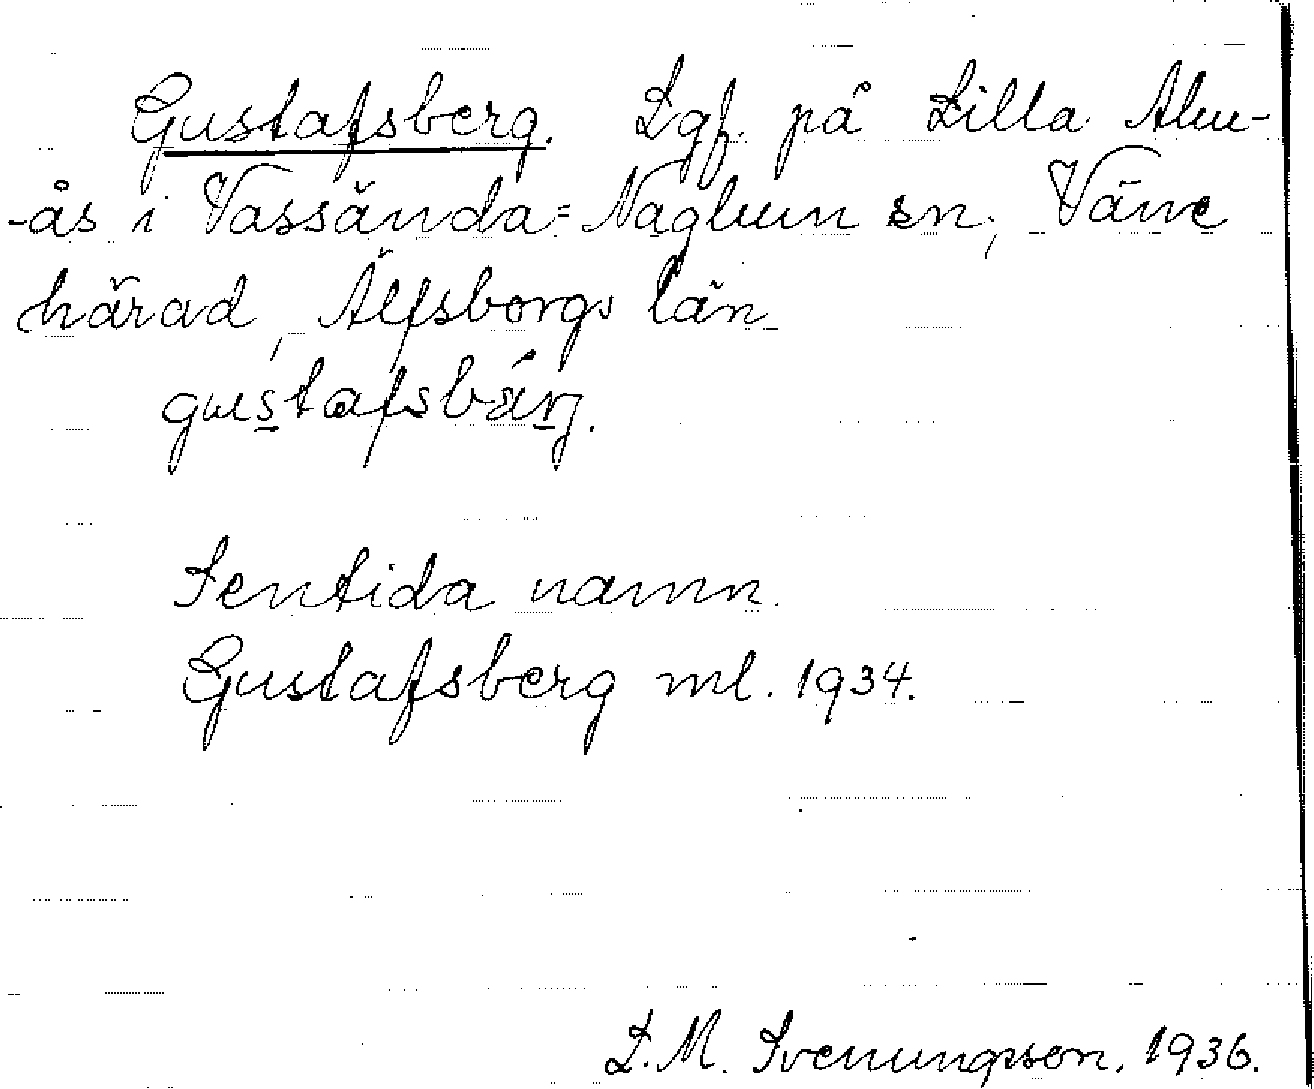 Gustafsberg. Lgf. på Lilla Alm-
-ås i Vassända=Naglum sn, Väne
härad, Älfsborgs län
gustafsbárj.
Sentida namn.
Gustafsberg ml. 1934.
L.M. Svenungsson, 1936.